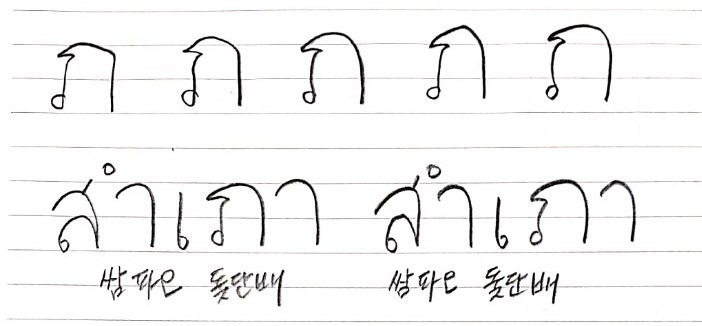 ภ ภ ภ ภ ภ
สำเภา สำเภา
쌈파오 돛단배 쌈파오 돛단배